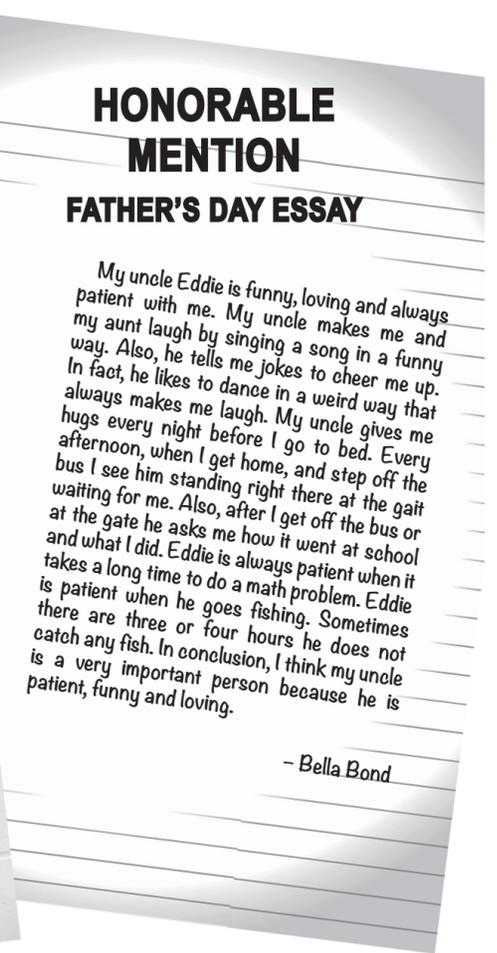 HONORABLE
MENTION
FATHER'S DAY ESSAY
My uncle Eddie is funny, loving and always
patient with me. My uncle makes me and
my aunt laugh by singing a song in a funny
way. Also, he tells me jokes to cheer me up.
In fact, he likes to dance in a weird way that
always makes me laugh. My uncle gives me
hugs every night before I go to bed. Every
afternoon, when I get home, and step off the
bus I see him standing right there at the gait
waiting for me. Also, after I get off the bus or
at the gate he asks me how it went at school
and what I did. Eddie is always patient when it
takes a long time to do a math problem. Eddie
is patient when he goes fishing. Sometimes
there are three or four hours he does not
catch any fish. In conclusion, I think my uncle
is a very important person because he is
patient, funny and loving.
– Bella Bond